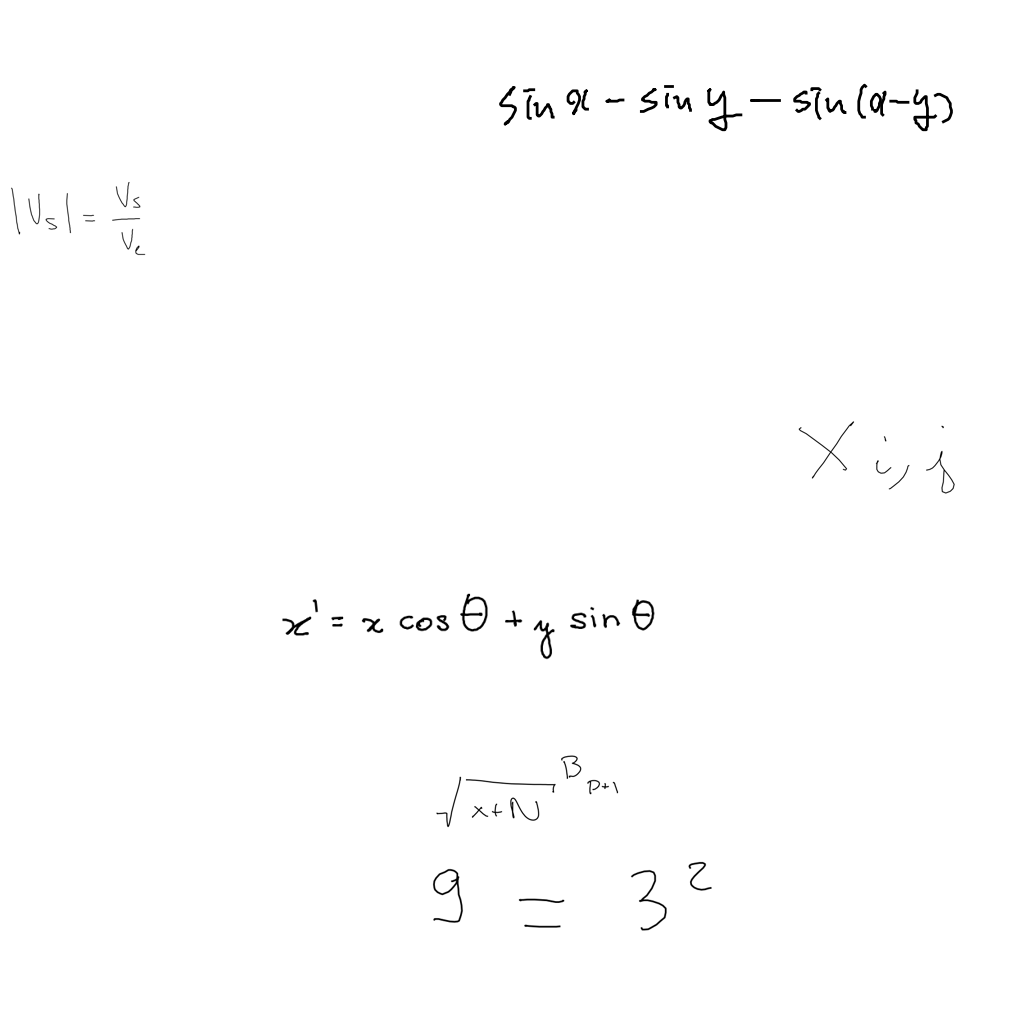 sin x - sin y - sin(x-y)
|V_s| = \frac{V_s}{V_c}
X i, j
x' = x cos θ + y sin θ
\sqrt{x+N}^{B_{p+1}}
9 = 3^2